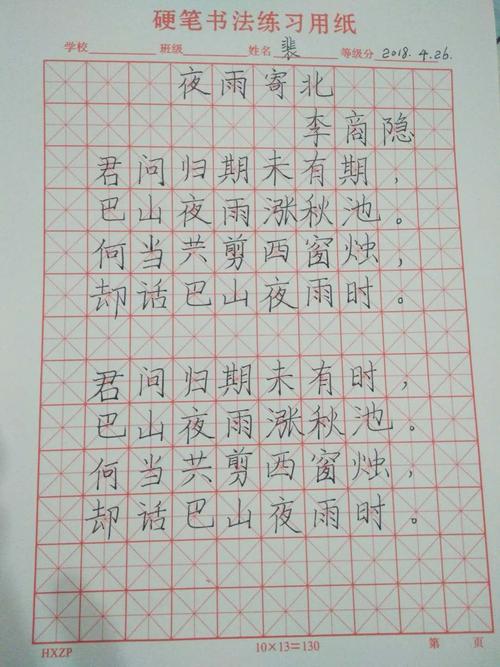 硬笔书法练习用纸
学校 班级 姓名 裴 等级分 2018.4.26.
夜雨寄北
李商隐
君问归期未有期，
巴山夜雨涨秋池。
何当共剪西窗烛，
却话巴山夜雨时。
君问归期未有时，
巴山夜雨涨秋池。
何当共剪西窗烛，
却话巴山夜雨时。
HXZP 10×13=130 第 页